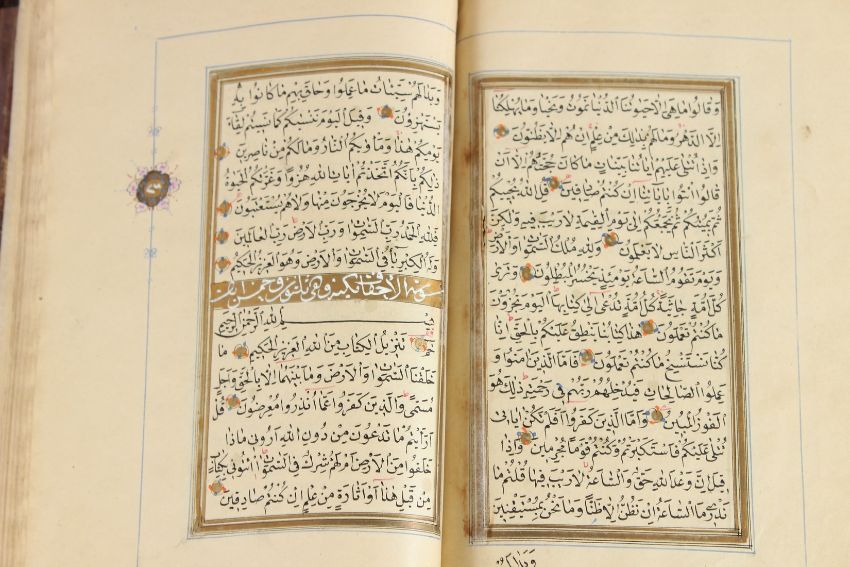 وقالوا ما هي الا حيوتنا الدنيا نموت ونحيا وما يهلكنا
الا الدهر وما لهم بذلك من علم ان هم الا يظنون
واذا تتلى عليهم اياتنا بينات ما كان حجتهم الا ان
قالوا ائتوا بابائنا ان كنتم صادقين قل الله يحييكم
ثم يميتكم ثم يجمعكم الى يوم القيمة لا ريب فيه ولكن
اكثر الناس لا يعلمون ولله ملك السموات والارض
ويوم تقوم الساعة يومئذ يخسر المبطلون وترى
كل امة جاثية كل امة تدعى الى كتابها اليوم تجزون
ما كنتم تعملون هذا كتابنا ينطق عليكم بالحق انا
كنا نستنسخ ما كنتم تعملون فاما الذين امنوا و
عملوا الصالحات فيدخلهم ربهم في رحمته ذلك هو
الفوز المبين واما الذين كفروا افلم تكن اياتي
تتلى عليكم فاستكبرتم وكنتم قوما مجرمين واذا
قيل ان وعد الله حق والساعة لا ريب فيها قلتم ما
ندري ما الساعة ان نظن الا ظنا وما نحن بمستيقنين
وبدا لهم
وبدا لهم سيئات ما عملوا وحاق بهم ما كانوا به
يستهزؤن وقيل اليوم ننسيكم كما نسيتم لقاء
يومكم هذا وماويكم النار وما لكم من ناصرين
ذلكم بانكم اتخذتم ايات الله هزوا وغرتكم الحيوة
الدنيا فاليوم لا يخرجون منها ولا هم يستعتبون
فلله الحمد رب السموات ورب الارض رب العالمين
وله الكبرياء في السموات والارض وهو العزيز الحكيم
سورة الاحقاف مكية وهي
بسم الله الرحمن الرحيم
حم تنزيل الكتاب من الله العزيز الحكيم ما
خلقنا السموات والارض وما بينهما الا بالحق واجل
مسمى والذين كفروا عما انذروا معرضون قل
ارايتم ما تدعون من دون الله اروني ماذا
خلقوا من الارض ام لهم شرك في السموات ائتوني بكتاب
من قبل هذا او اثارة من علم ان كنتم صادقين